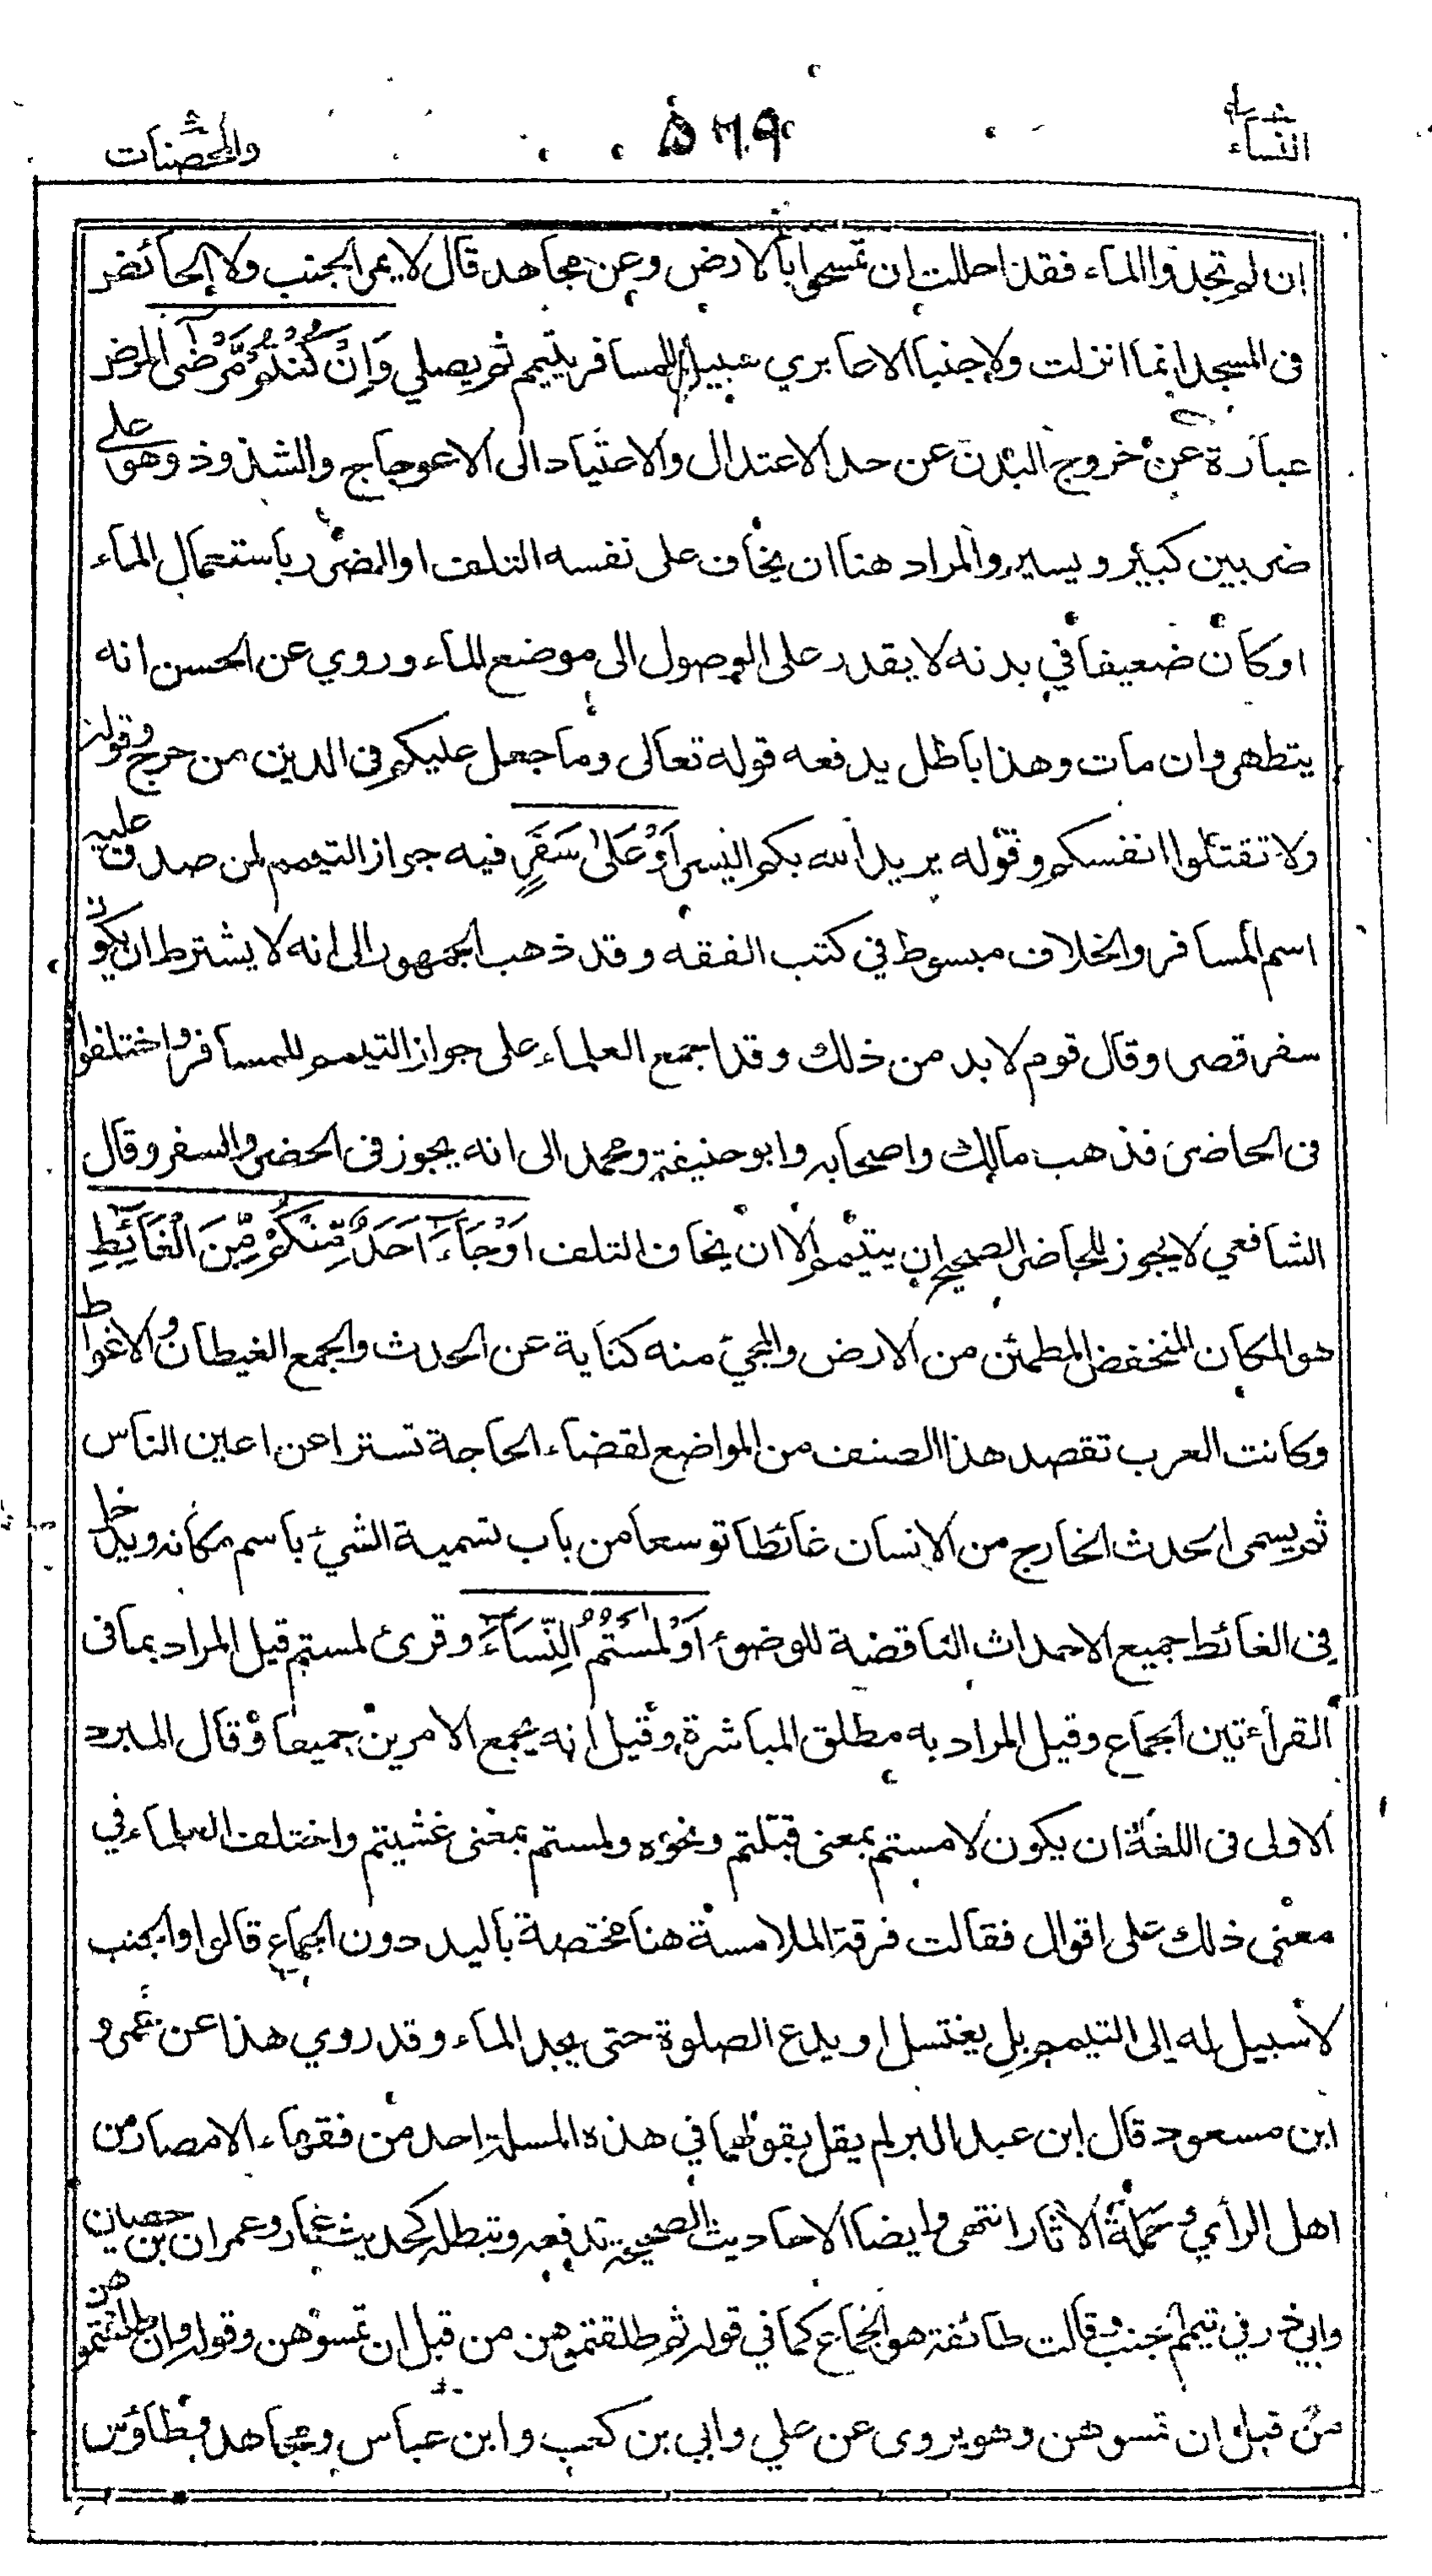 النساء
٥٦٩
والمحصنات
ان لم تجدوا الماء فقد احللت ان تمسحوا بالارض وعن مجاهد قال لا يمر الجنب ولا الحائض
فى المسجد انما انزلت ولا جنبا الا عابري سبيل للمسافر يتيمم ثم يصلي وَإِنْ كُنْتُمْ مَّرْضٰى المرض
عبارة عن خروج البدن عن حد الاعتدال والاعتياد الى الاعوجاج والشذوذ وهو على
ضربين كبير ويسير والمراد هنا ان يخاف على نفسه التلف او الضرر باستعمال الماء
او كان ضعيفا في بدنه لا يقدر على الوصول الى موضع الماء وروي عن الحسن انه
يتطهر وان مات وهذا باطل يدفعه قوله تعالى وما جعل عليكم فى الدين من حرج وقوله
ولا تقتلوا انفسكم وقوله يريد الله بكم اليسر اَوْ عَلٰى سَفَرٍ فيه جواز التيمم لمن صدق عليه
اسم المسافر والخلاف مبسوط في كتب الفقه وقد ذهب الجمهور الى انه لا يشترط ان يكون
سفر قصر وقال قوم لا بد من ذلك وقد اجمع العلماء على جواز التيمم للمسافر واختلفوا
فى الحاضر فذهب مالك واصحابه وابو حنيفة ومحمد الى انه يجوز فى الحضر والسفر وقال
الشافعي لا يجوز للحاضر الصحيح ان يتيمم الا ان يخاف التلف اَوْ جَآءَ اَحَدٌ مِّنْكُمْ مِّنَ الْغَآئِطِ
هو المكان المنخفض المطمئن من الارض والمجيئ منه كناية عن الحدث والجمع الغيطان والاغواط
وكانت العرب تقصد هذا الصنف من المواضع لقضاء الحاجة تسترا عن اعين الناس
ثم يسمى الحدث الخارج من الانسان غائطا توسعا من باب تسمية الشيئ باسم مكانه ويدخل
فى الغائط جميع الاحداث الناقضة للوضوء اَوْ لٰمَسْتُمُ النِّسَآءَ وقرئ لمستم قيل المراد بما فى
القرأءتين الجماع وقيل المراد به مطلق المباشرة وقيل انه يجمع الامرين جميعا وقال المبرد
الاولى فى اللغة ان يكون لامستم بمعنى قبلتم ونحوه ولمستم بمعنى غشيتم واختلف العلماء في
معنى ذلك على اقوال فقالت فرقة الملامسة هنا مختصة باليد دون الجماع قالوا والجنب
لا سبيل له الى التيمم بل يغتسل او يدع الصلوة حتى يجد الماء وقد روي هذا عن عمر و
ابن مسعود قال ابن عبد البر لم يقل بقولهما في هذه المسلة احد من فقهاء الامصار من
اهل الرأي وحملة الاثار انتهى وايضا الاحاديث الصحيحة تدفعه وتبطله كحديث عمار وعمران بن حصين
وابي ذر في تيمم الجنب وقالت طائفة هو الجماع كما في قوله ثم طلقتموهن من قبل ان تمسوهن وقوله وان طلقتموهن
من قبل ان تمسوهن وهو يروى عن علي وابي بن كعب وابن عباس ومجاهد وطاؤس